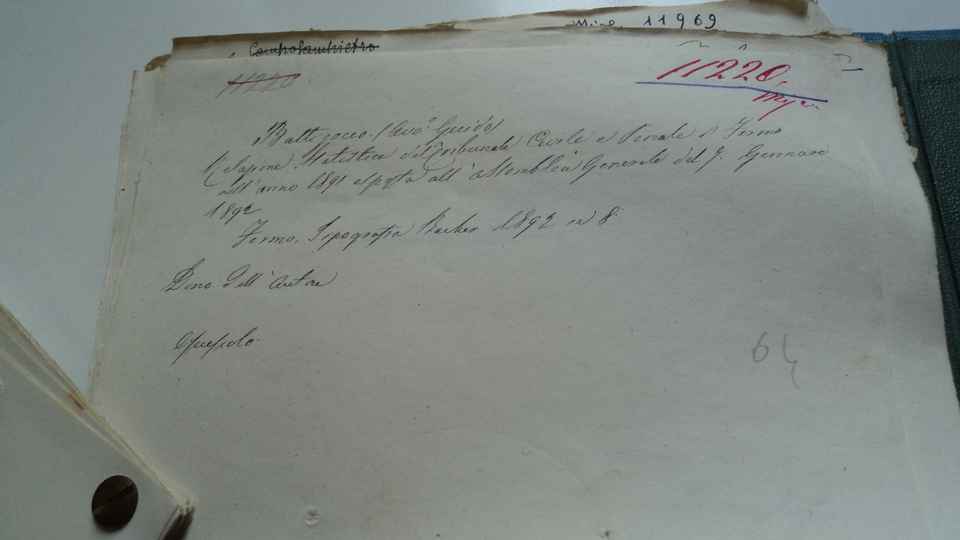 Misc. 11969
Campolambietro
11220
11220
Battirocco (Avv.º Guido)
Relazione Statistica del Tribunale Civile e Penale di Fermo
dell'anno 1891 esposta all'assemblea Generale del 7. Gennaio
1892
Fermo, Tipografia Bacher 1892 in 8.
Dono dell'autore
Opuscolo
64